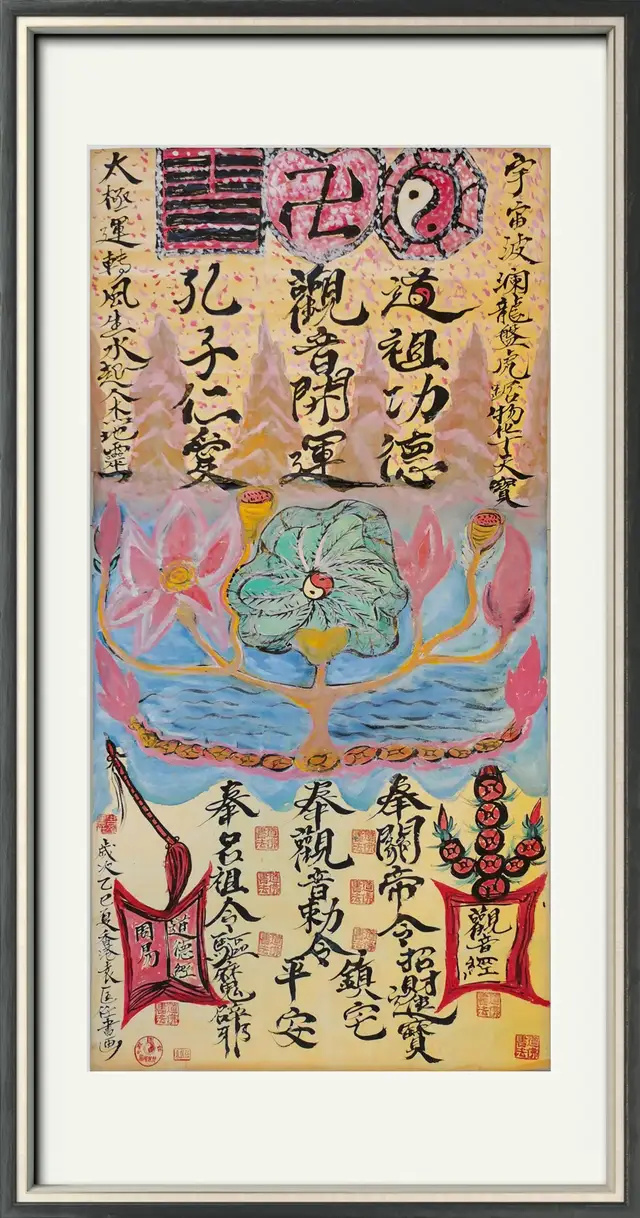 宇宙波澜龍盤虎踞物华天寶
道祖功德
觀音開運
孔子仁愛
太極運轉風生水起人杰地靈
觀音經
奉關帝令招財進寶
奉觀音勅令
鎮宅
平安
奉呂祖令驅魔辟邪
道德經
周易
歲次乙巳夏書画